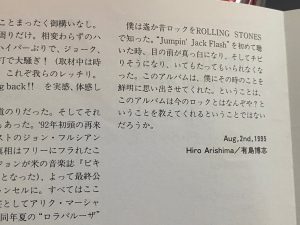 ことまったく御構いなし。
周りだけ。相変わらずのハ
ハイパーぶりで、ジョーク、
打で大騒ぎ！（取材中は時
これぞ我らのレッチリ。
g back!! を実感、体感し
道のりだった。そしてそれ
もあった。'92年初頭の再米
ストのジョン・フルシアン
真相はフリーにフラれたこ
ジョンが米の音楽誌『ビキ
となった)、よって最終公
ャンセルに。すべてはここ
任としてアリク・マーシャ
同年夏の“ロラパルーザ”
僕は遙か昔ロックをROLLING STONES
で知った。“Jumpin' Jack Flash”を初めて聴
いた時、目の前が真っ白になり、そしてチビ
りそうになり、いてもたってもいられなくな
った。このアルバムは、僕にその時のことを
鮮明に思い出させてくれた。ということは、
このアルバムは今のロックとはなんぞや？と
いうことを教えてくれるということではない
だろうか。
Aug,2nd,1995
Hiro Arishima／有島博志